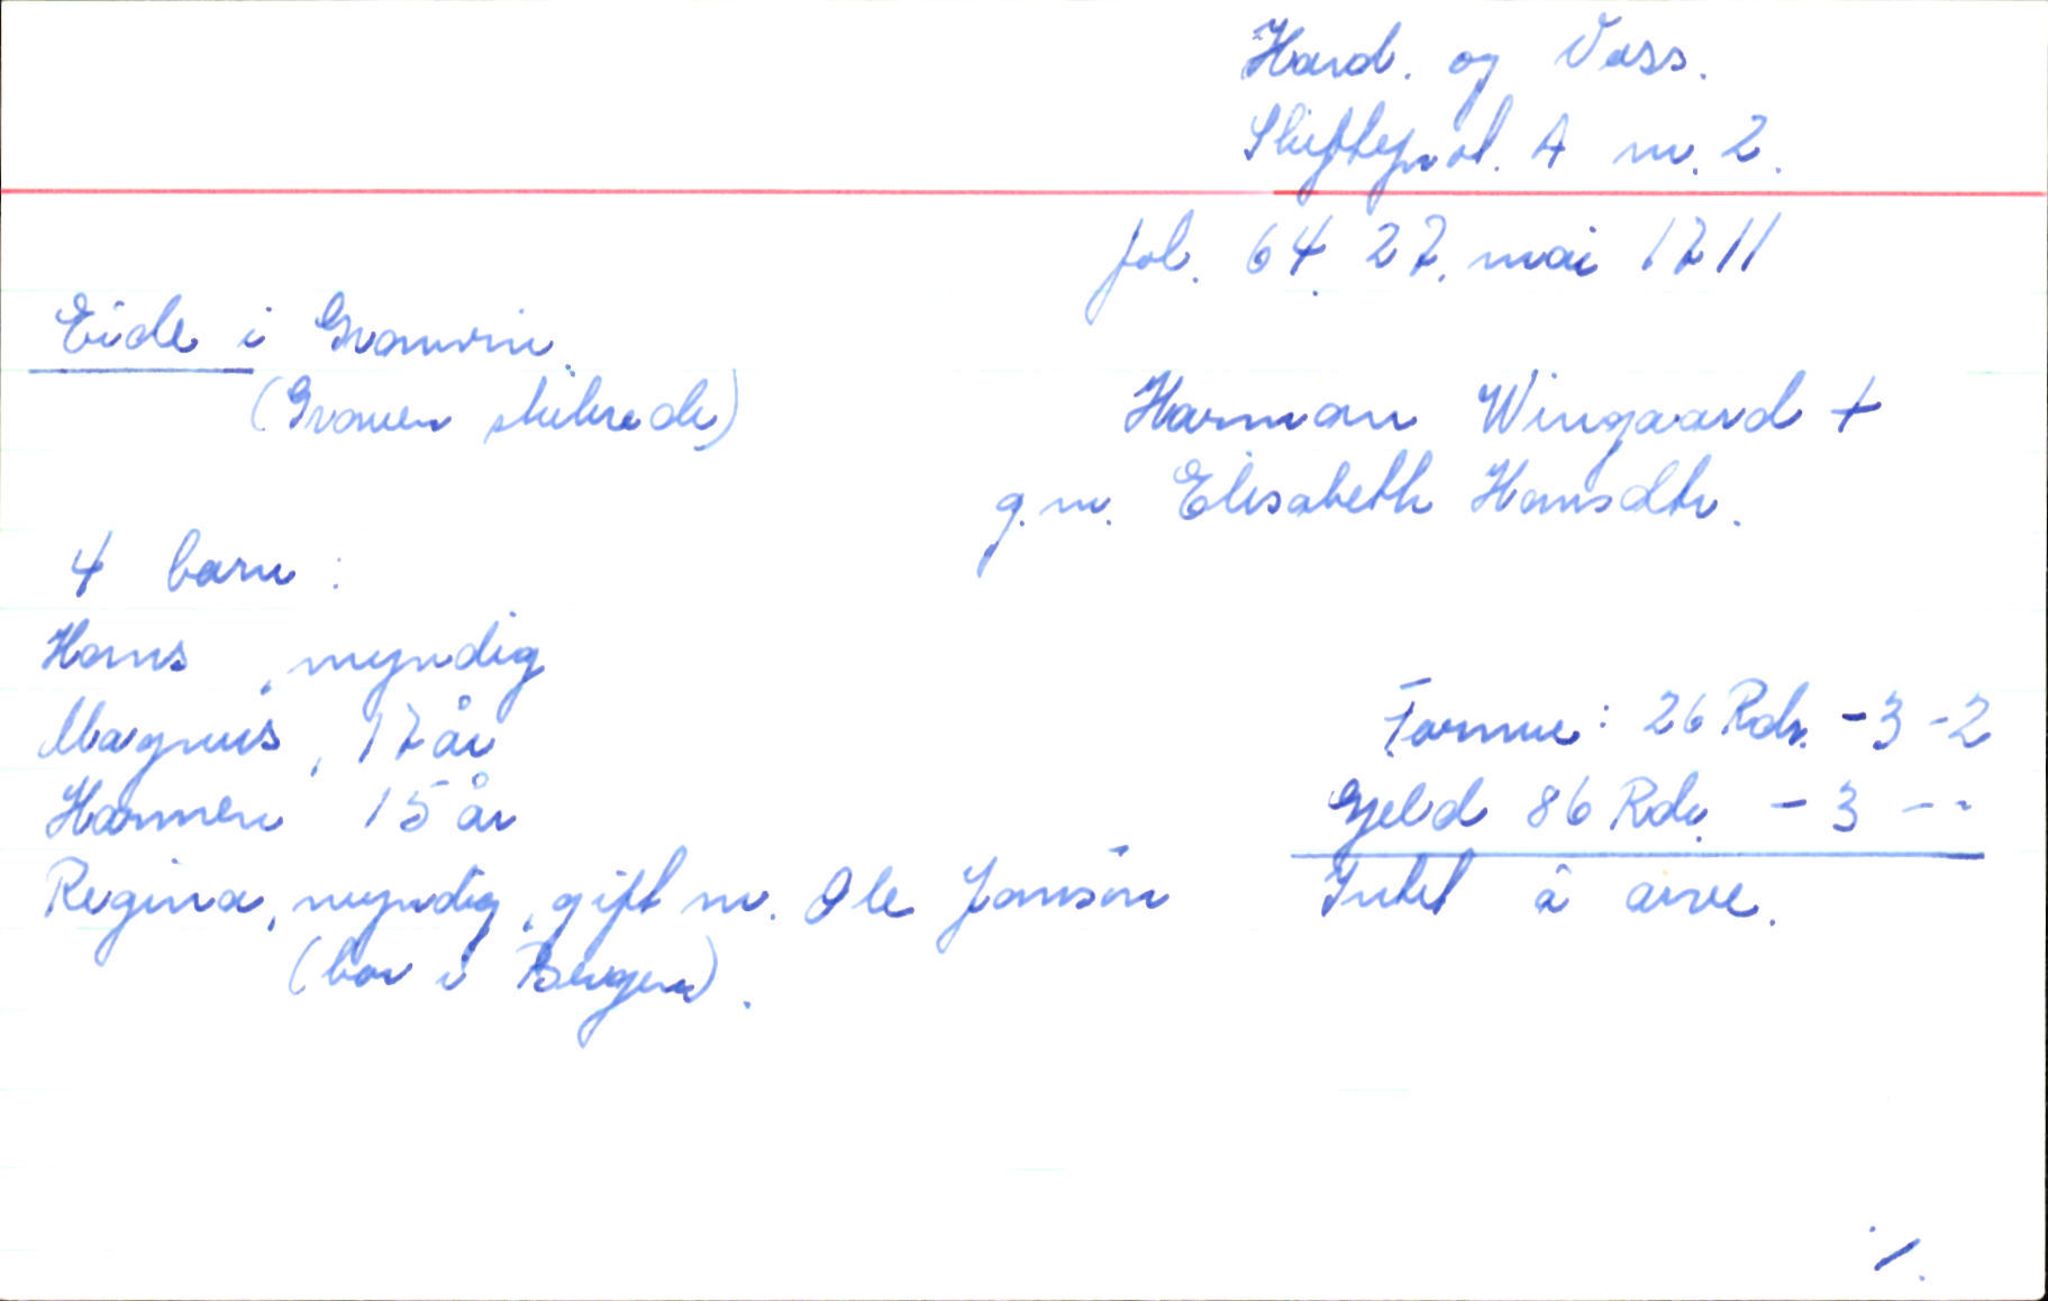 Hard. og Voss.
Skifteprot. A nr. 2.
fol. 64. 27. mai 1711
Eide i Granvin.
(Graven skibrede)
Harman Wingaard +
g.m. Elisabeth Hansdtr.
4 barn:
Hans, myndig
Magnus, 17 år
Harmen 15 år
Regina, myndig, gift m. Ole Jonsøn
(bor i Bergen).
Formue: 26 Rdr. - 3 - 2
Gjeld 86 Rdr. - 3 - -
Intet å arve.
./.